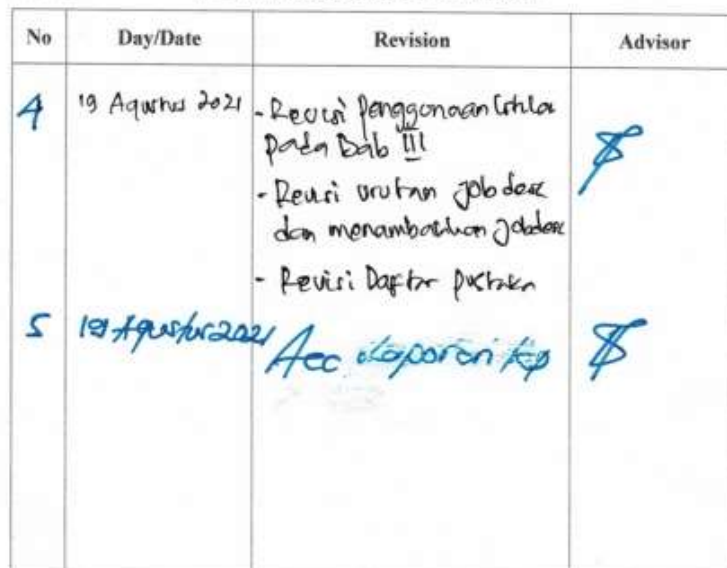 No Day/Date Revision Advisor
4 19 Agustus 2021 - Revisi Penggunaan
pada Bab III
- Revisi urutan jobdesc
dan menambahkan jobdesc
- Revisi Daftar pustaka
5 19 Agustus 2021 Acc Laporan KP